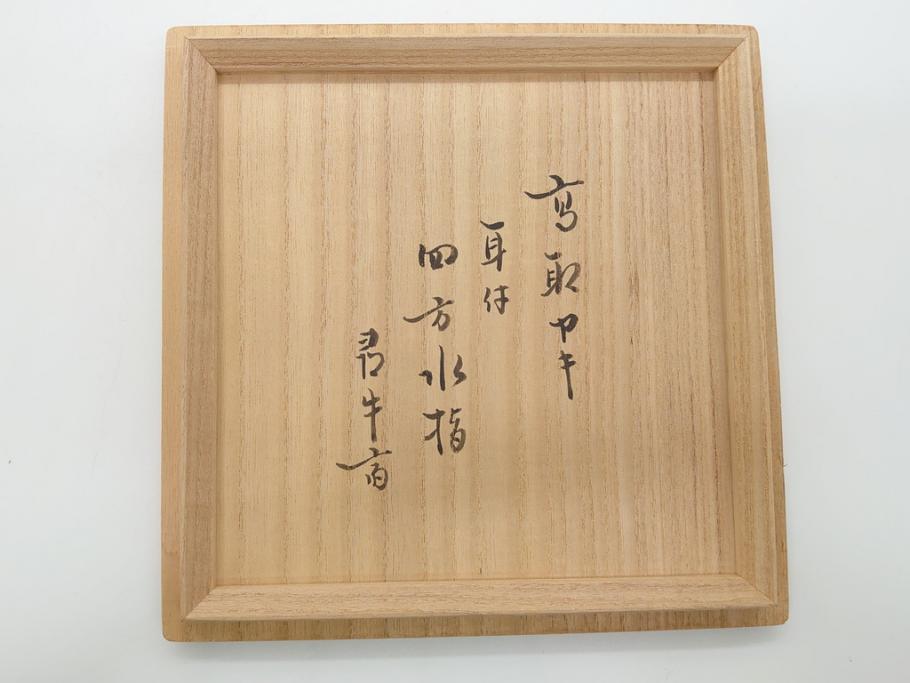 高取ヤキ
耳付
四方水指
君牛斎